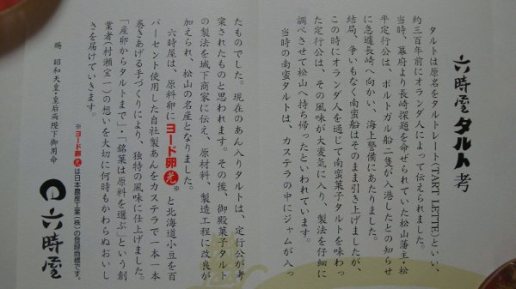 六時屋タルト考
タルトは原名をタルトレート(TART LETTE)といい、
約三百年前にオランダ人によって伝えられました。
当時、幕府より長崎探題を命ぜられていた松山藩主・松
平定行公は、ポルトガル船二隻が入港したとの知らせ
に急遽長崎へ向かい、海上警備にあたりました。
結局、争いもなく南蛮船はそのまま引き上げましたが、
この時にオランダ人を通じて南蛮菓子タルトを味わっ
た定行公は、その風味が大変気に入り、製法を仔細に
調べさせて松山へ持ち帰ったといわれています。
当時の南蛮タルトは、カステラの中にジャムが入っ
たものでした。現在のあん入りタルトは、定行公が考
案されたものと思われます。その後、御殿菓子タルト
の製法を城下商家に伝え、原材料、製造工程に改良が
加えられ、松山の名産となりました。
六時屋は、原料卵にヨード卵光※と北海道小豆を百
パーセント使用した自社製あんをカステラで一本一本
巻きあげる手づくりにより、独特の風味に仕上げました。
「産卵からタルトまで」・「銘菓は原料を選ぶ」という創
業者(村瀬宝一)の想いを大切に何時もかわらぬおいし
さを届けていきます。
賜 昭和天皇・皇后両陛下御用命
※ヨード卵光は日本農産工業(株)の登録商標です。
六時屋